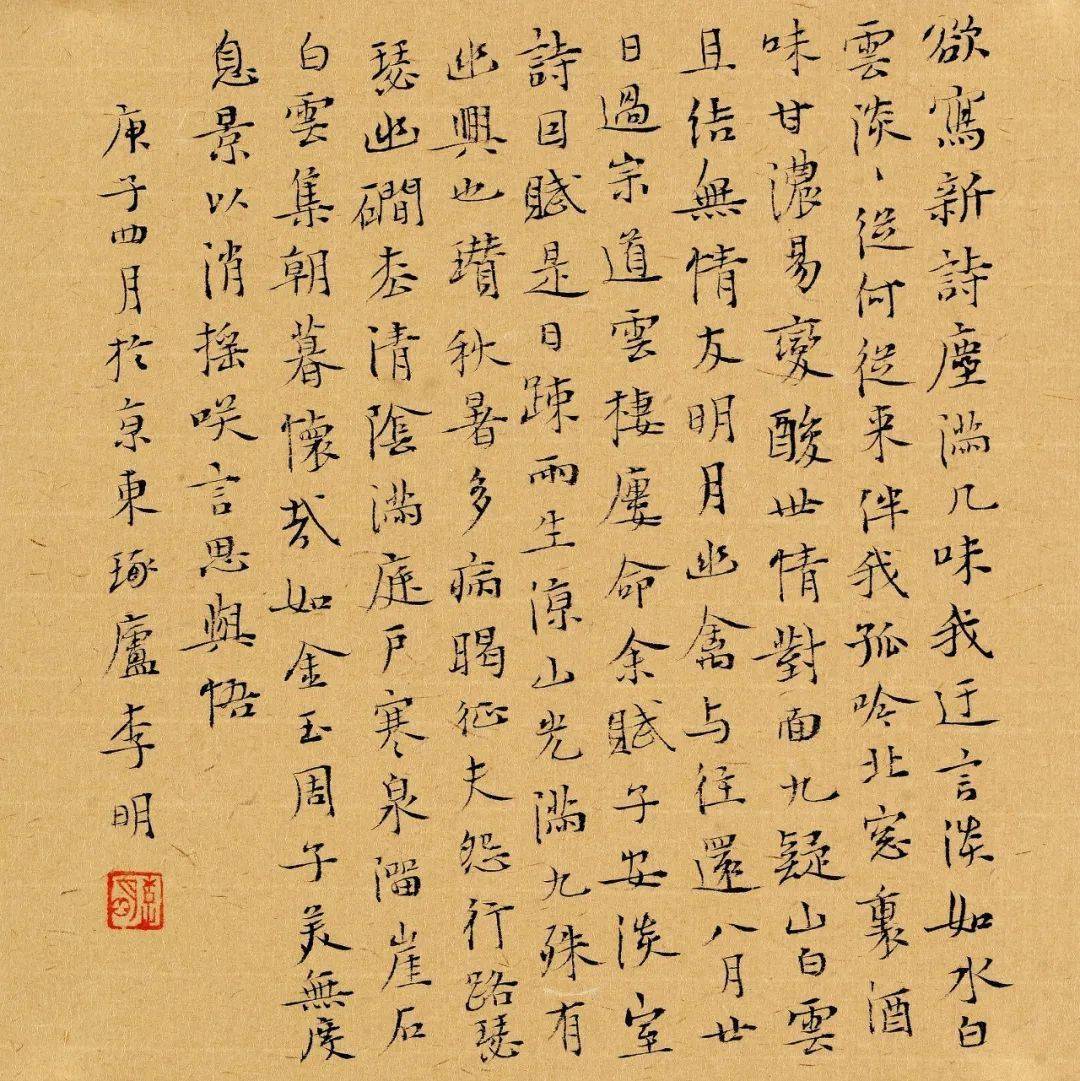 欲寫新詩塵滿几味我迂言淡如水白
雲淡、從何從来伴我孤吟北窓裏酒
味甘濃易變酸世情對面九疑山白雲
且結無情友明月幽禽与往還八月廿
日過宗道雲棲廔命余賦子安淡室
詩因賦是日疎雨生涼山光滿九殊有
幽興也瓚秋暑多病暍征夫怨行路瑟
瑟幽磵松清陰滿庭戶寒泉溜崖石
白雲集朝暮懷哉如金玉周子美無度
息景以消搖咲言思與悟
庚子四月於京東琢廬李明